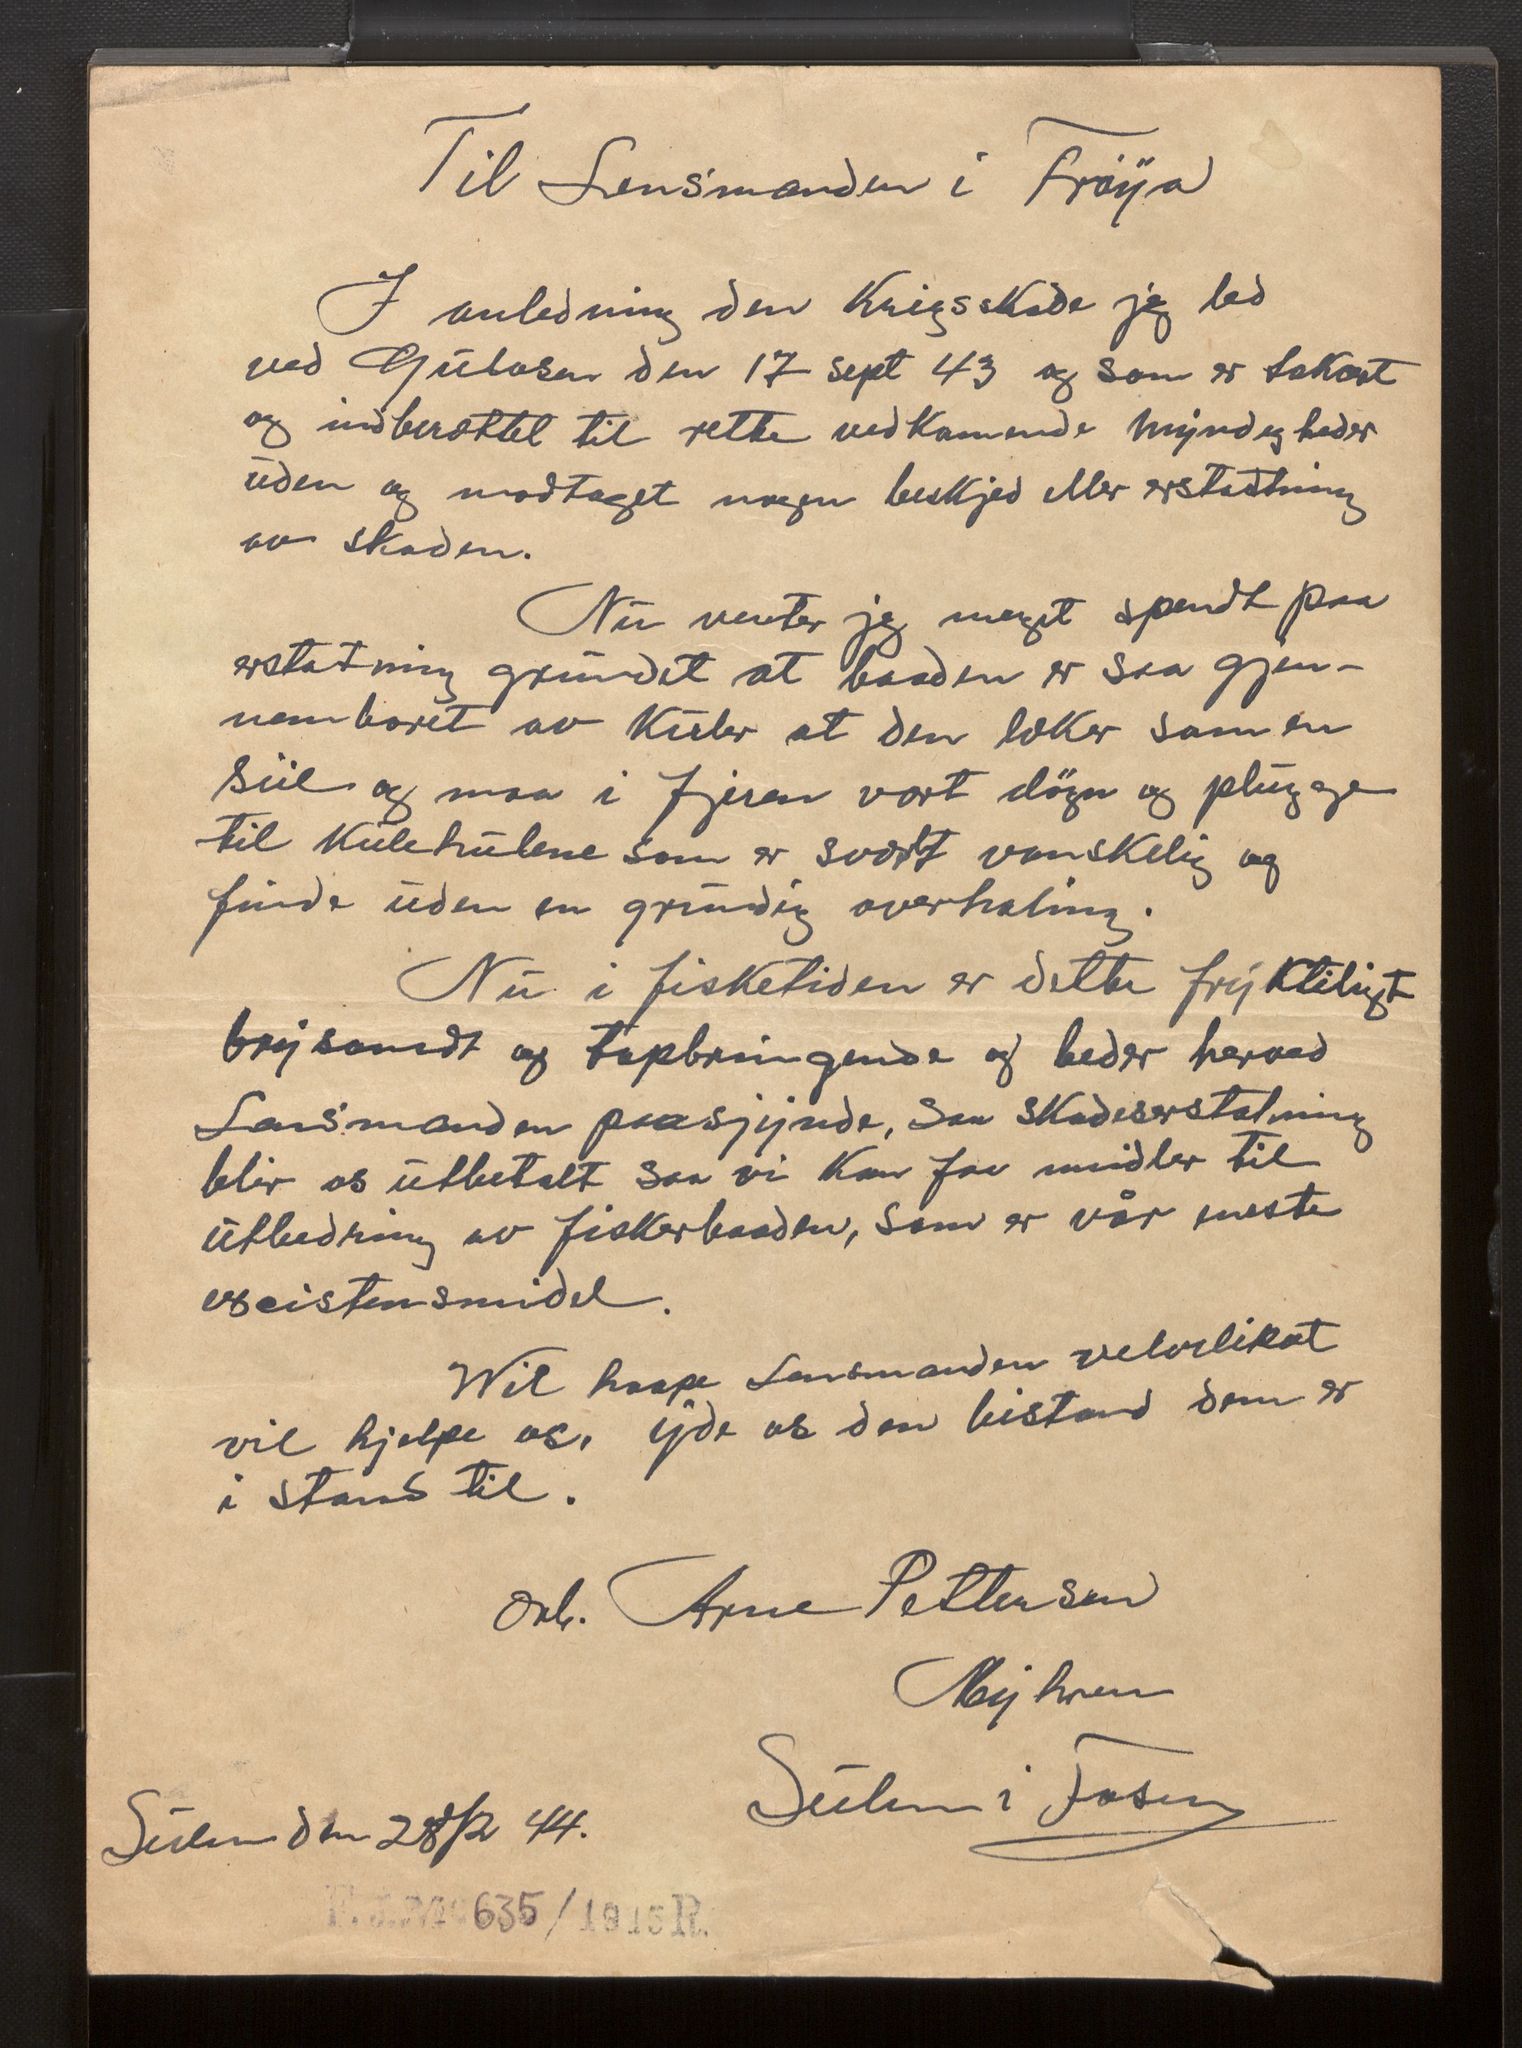 Til Lensmanden i Frøya
I anledning den Krigsskade jeg led
ved Gulosen den 17 sept 43 og som er takæst
og indberættet til rette vedkomende myndigheder
uden og modtaget nogen beskjed eller erstadtning
av skaden.
Nu venter jeg meget spendt paa
erstatning grundet at baaden er saa gjen-
nemboret av Kuler at den læker som en
Siil og maa i fjæren vært døgn og plugge
til Kulehulene som er svært vanskelig og
finde uden en grundig overhaling.
Nu i fisketiden er dette fryktligt
brysomdt og tapbringende og beder herved
Lensmanden paaskjynde, saa skadeserstatning
blir os utbetalt saa vi kan faa midler til
utbedring av fiskerbaaden, som er vår eneste
excistensmidel.
Wil haape Lensmanden velvilikst
vil hjelpe os, yde os den bistand dem er
i stand til.
Arne Pettersen
Myhren
Sulen i Fosen
Sulen den 28/2 44.
635/1945 R.